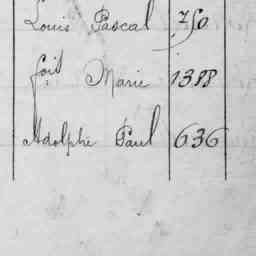 Louis Pascal 750
Marie 1388
Adolphe Paul 636